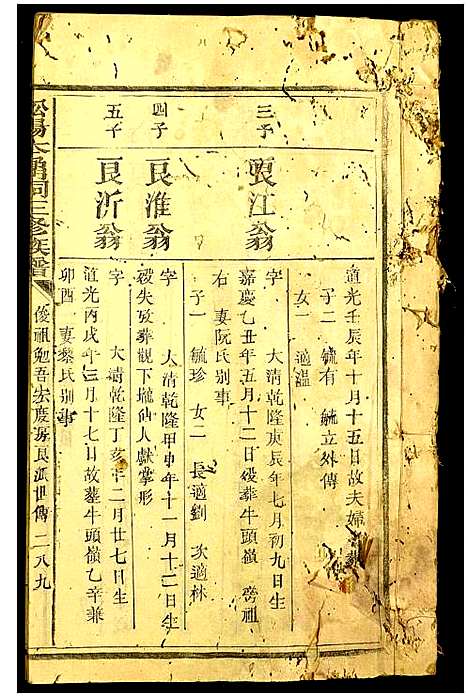 道光壬辰年十月十五日故夫婦
子二 毓有 毓立外傳
女一 適溫
三子
良江翁
字 大清乾隆庚辰年七月初九日生
嘉慶乙丑年五月十二日歿葬牛頭嶺 傍祖
右 妻阮氏別事
子一 毓珍 女二 長適劉 次適林
四子
良淮翁
字 大清乾隆甲申年十一月十二日生
歿失攷葬觀下壠仙人獻掌形
五子
良沂翁
字 大清乾隆丁亥年二月廿七日生
道光丙戌年三月十七日故葬牛頭嶺乙辛兼
卯酉 妻黎氏別事
松陽 祠三修族譜
俊祖勉吾宏慶房良派世傳 二八九